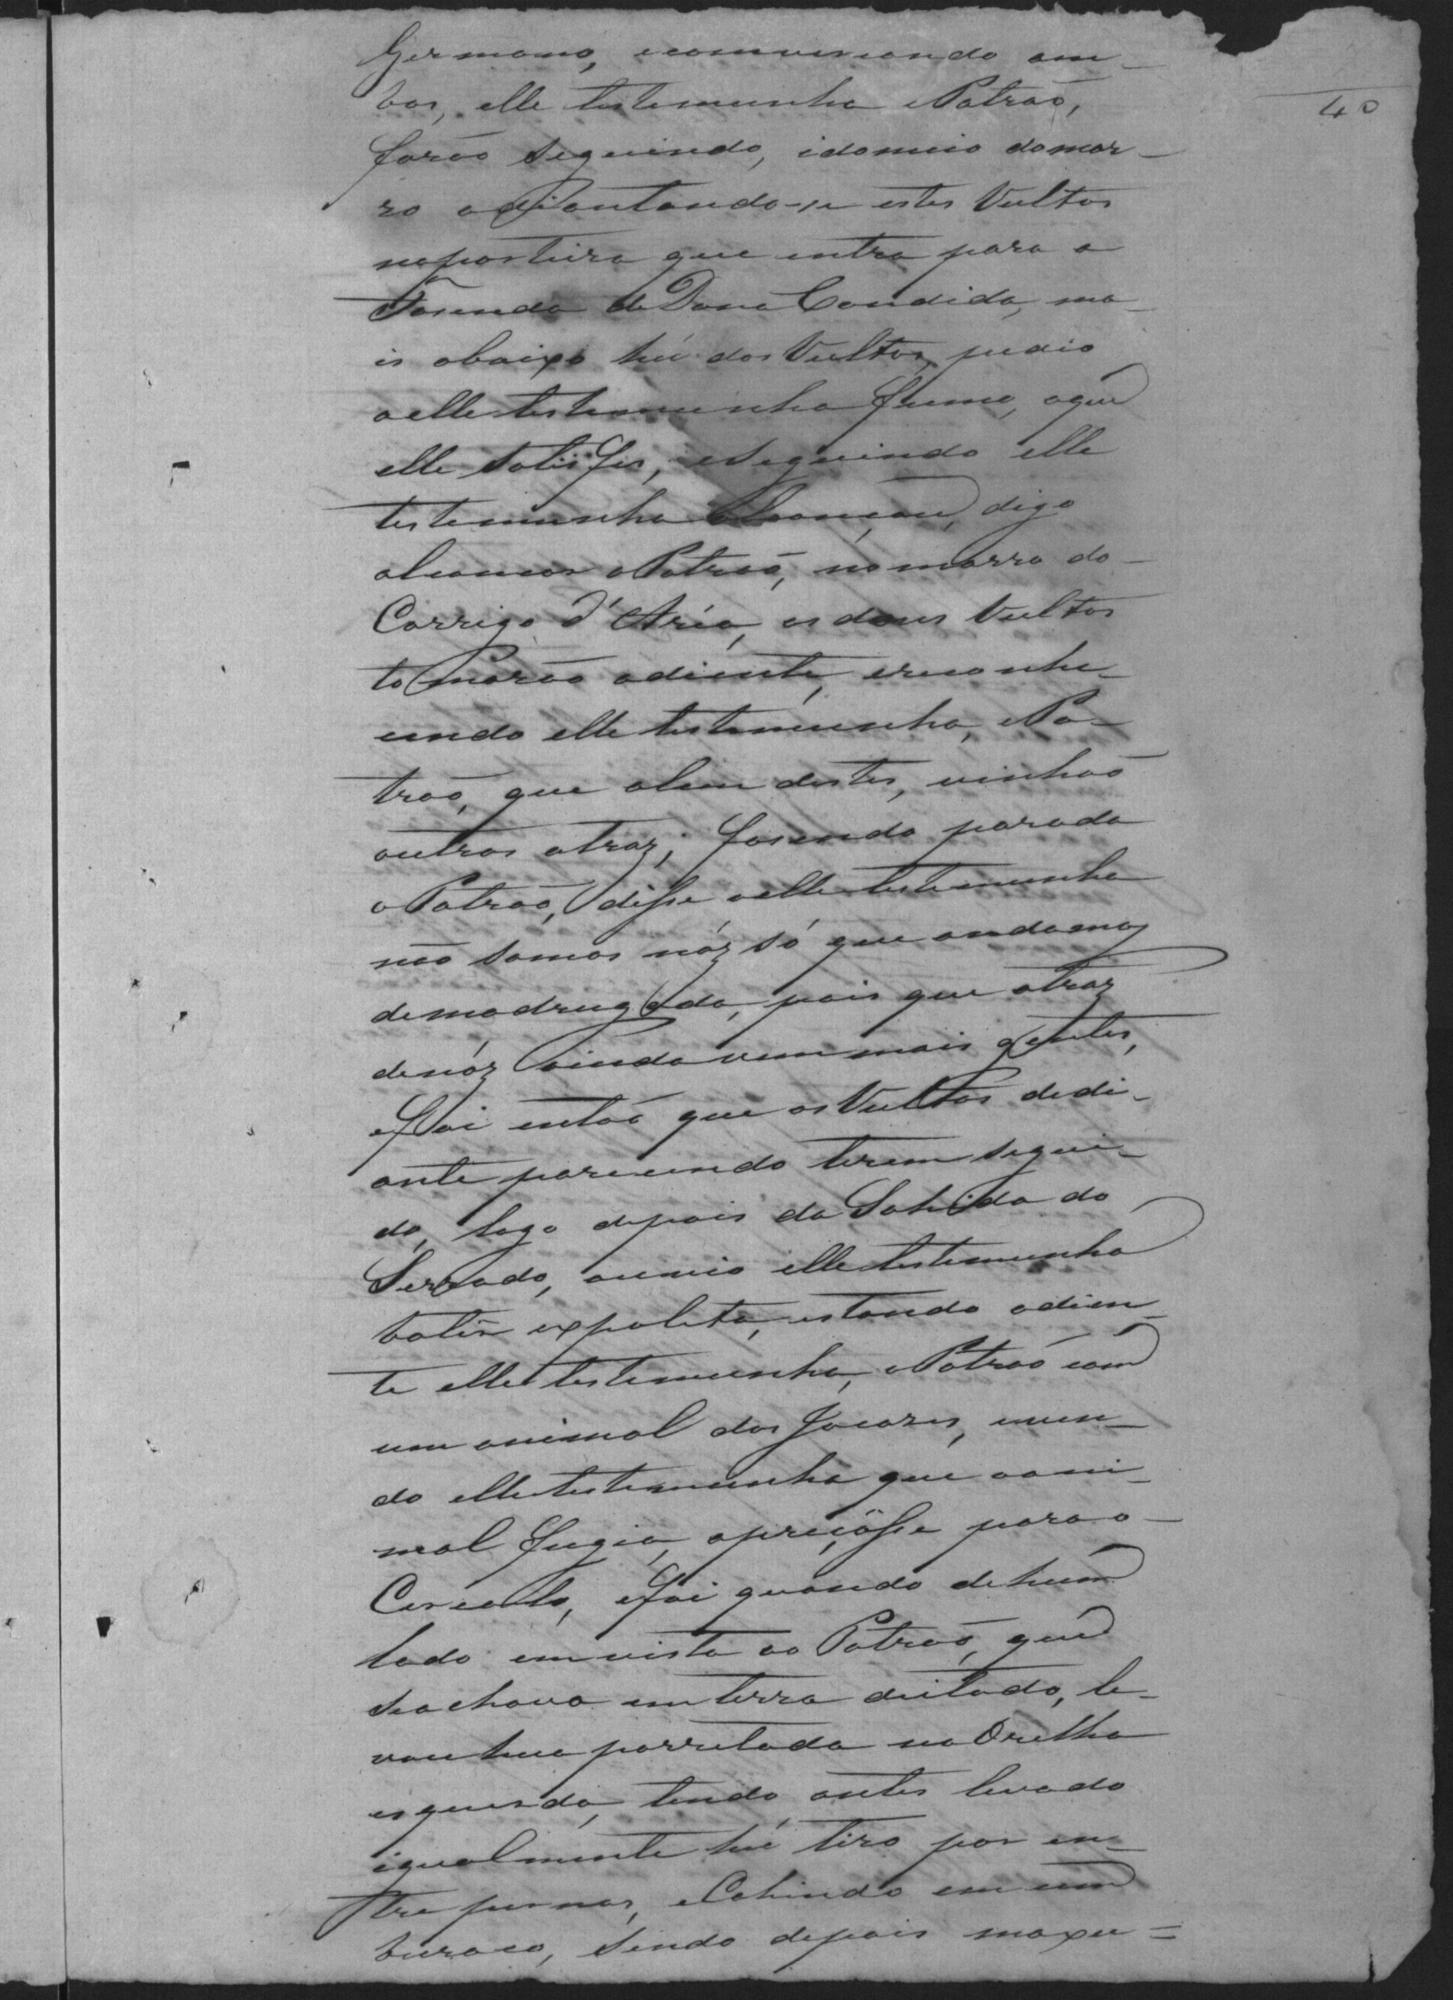 40
Germano, econversando am-
bos, elle testemunha e Patraõ,
foraõ seguindo, idomeio domor-
ro adiantando-se estes Vultos
naporteira que entra para a
Fasenda de Dona Candida, ma-
is abaixo hú dos Vultos, pedio
aelle testemunha fumo, aque
elle satisfes, eseguindo elle
testemunha alcançou, digo
alcançar o Patraõ, nomorro do
Corrigo d'Aréa, os dous Vultos
tomaraõ adiente, ereconhe-
cendo elle testemunha, e Pa-
traõ, que alem destes, vinhaõ
outros atraz; fasendo parada
o Patraõ, disse aelle testemunha
naõ somos nóz só que andamos
demadrugada, pois que atraz
denóz ainda vem mais gentes,
efoi entaõ que os Vultos dedi-
ante parecendo terem segui-
do, logo depois da Sahida do
Serrado, ouvio elle testemunha
bater espoleta, estando adien-
te elle testemunha, e Patraõ com
um animal dos Jacazes, even-
do elle testemunha que oani-
mal fugia, apreçasse para o
Cercalo, efoi quando dehum
lado em vista ao Patraõ, que
seachava em terra deitado, le-
vou hua porretada na Orelha
esquerda, tendo antes levado
igualmente hú tiro por en-
tre pernas, e Cahindo em um
buraco, sendo depois maxu=